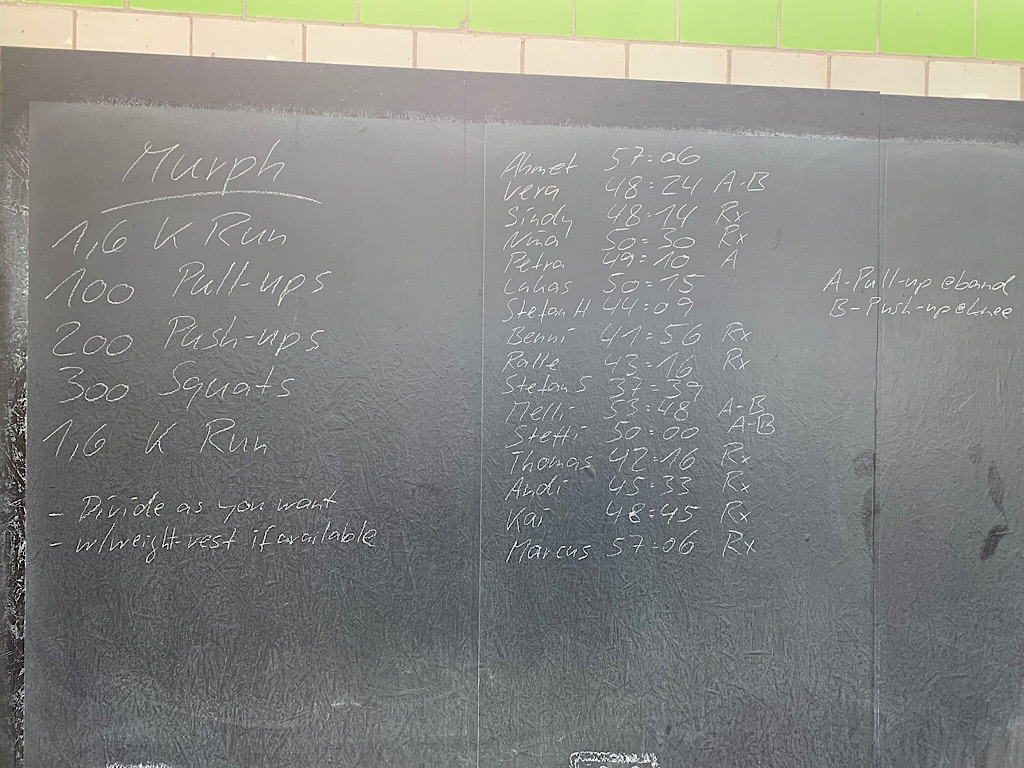 Murph
1,6 K Run
100 Pull-ups
200 Push-ups
300 Squats
1,6 K Run
- Divide as you want
- w/weight vest if available
Ahmet 57:06
Vera 48:24 A-B
Sindy 48:14 Rx
Nina 50:30 Rx
Petra 49:10 A
Lukas 50:15
Stefan H 44:09
Benni 41:56 Rx
Ralle 43:16 Rx
Stefan S 37:39
Melli 53:48 A-B
Steffi 50:00 A-B
Thomas 42:16 Rx
Andi 45:33 Rx
Kai 48:45 Rx
Marcus 57:06 Rx
A-Pull-up @band
B-Push-up @knee